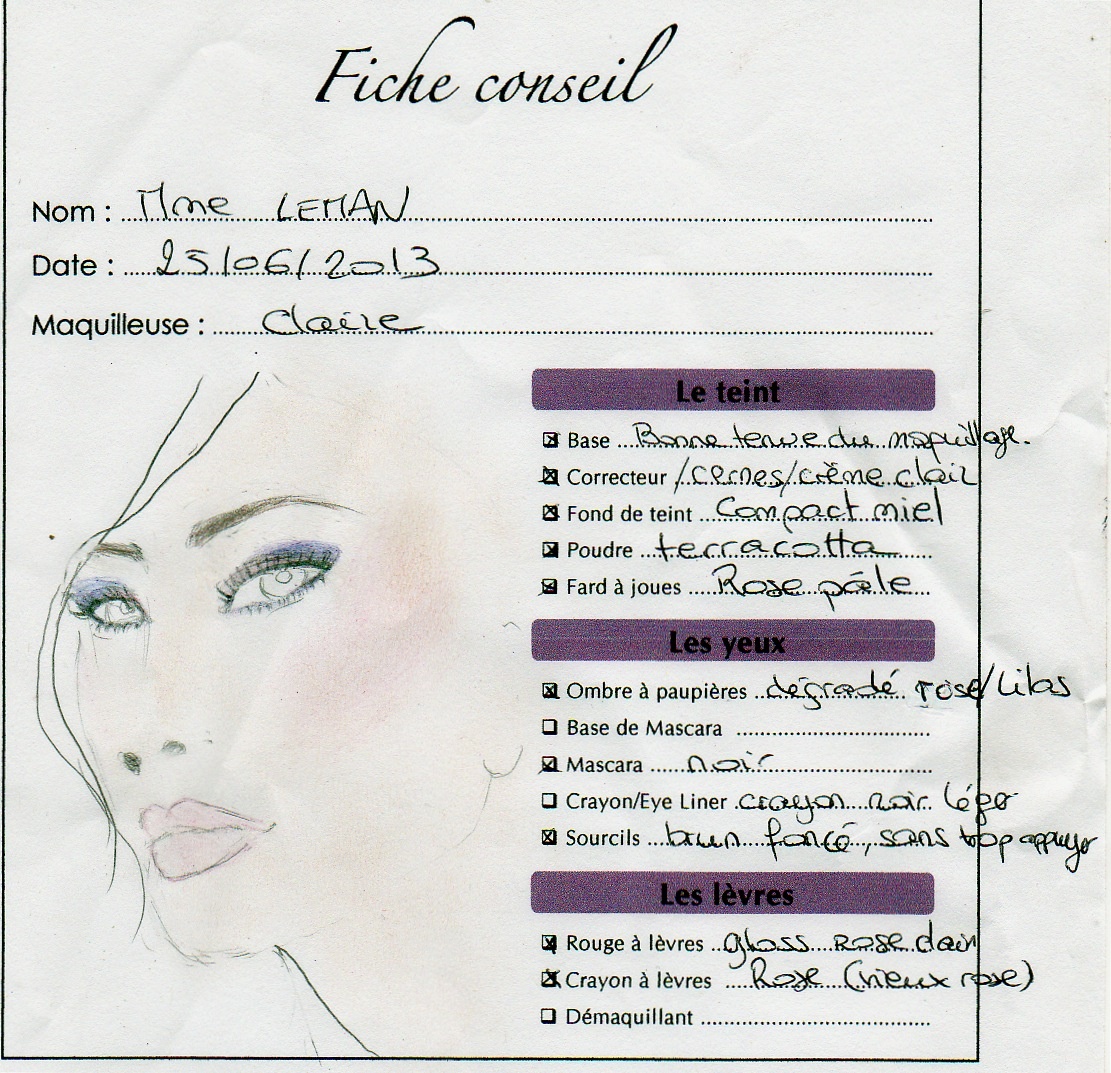 Fiche conseil
Nom : Mme LEMAN
Date : 25/06/2013
Maquilleuse : Claire
Le teint
☒ Base Bonne tenue du maquillage.
☒ Correcteur /cernes/crème clair
☒ Fond de teint Compact miel
☒ Poudre terracotta
☒ Fard à joues Rose pâle
Les yeux
☒ Ombre à paupières dégradé rose/Lilas
☐ Base de Mascara
☒ Mascara noir
☐ Crayon/Eye Liner crayon noir léger
☒ Sourcils brun foncé, sans trop appuyer
Les lèvres
☒ Rouge à lèvres gloss rose clair
☒ Crayon à lèvres Rose (vieux rose)
☐ Démaquillant